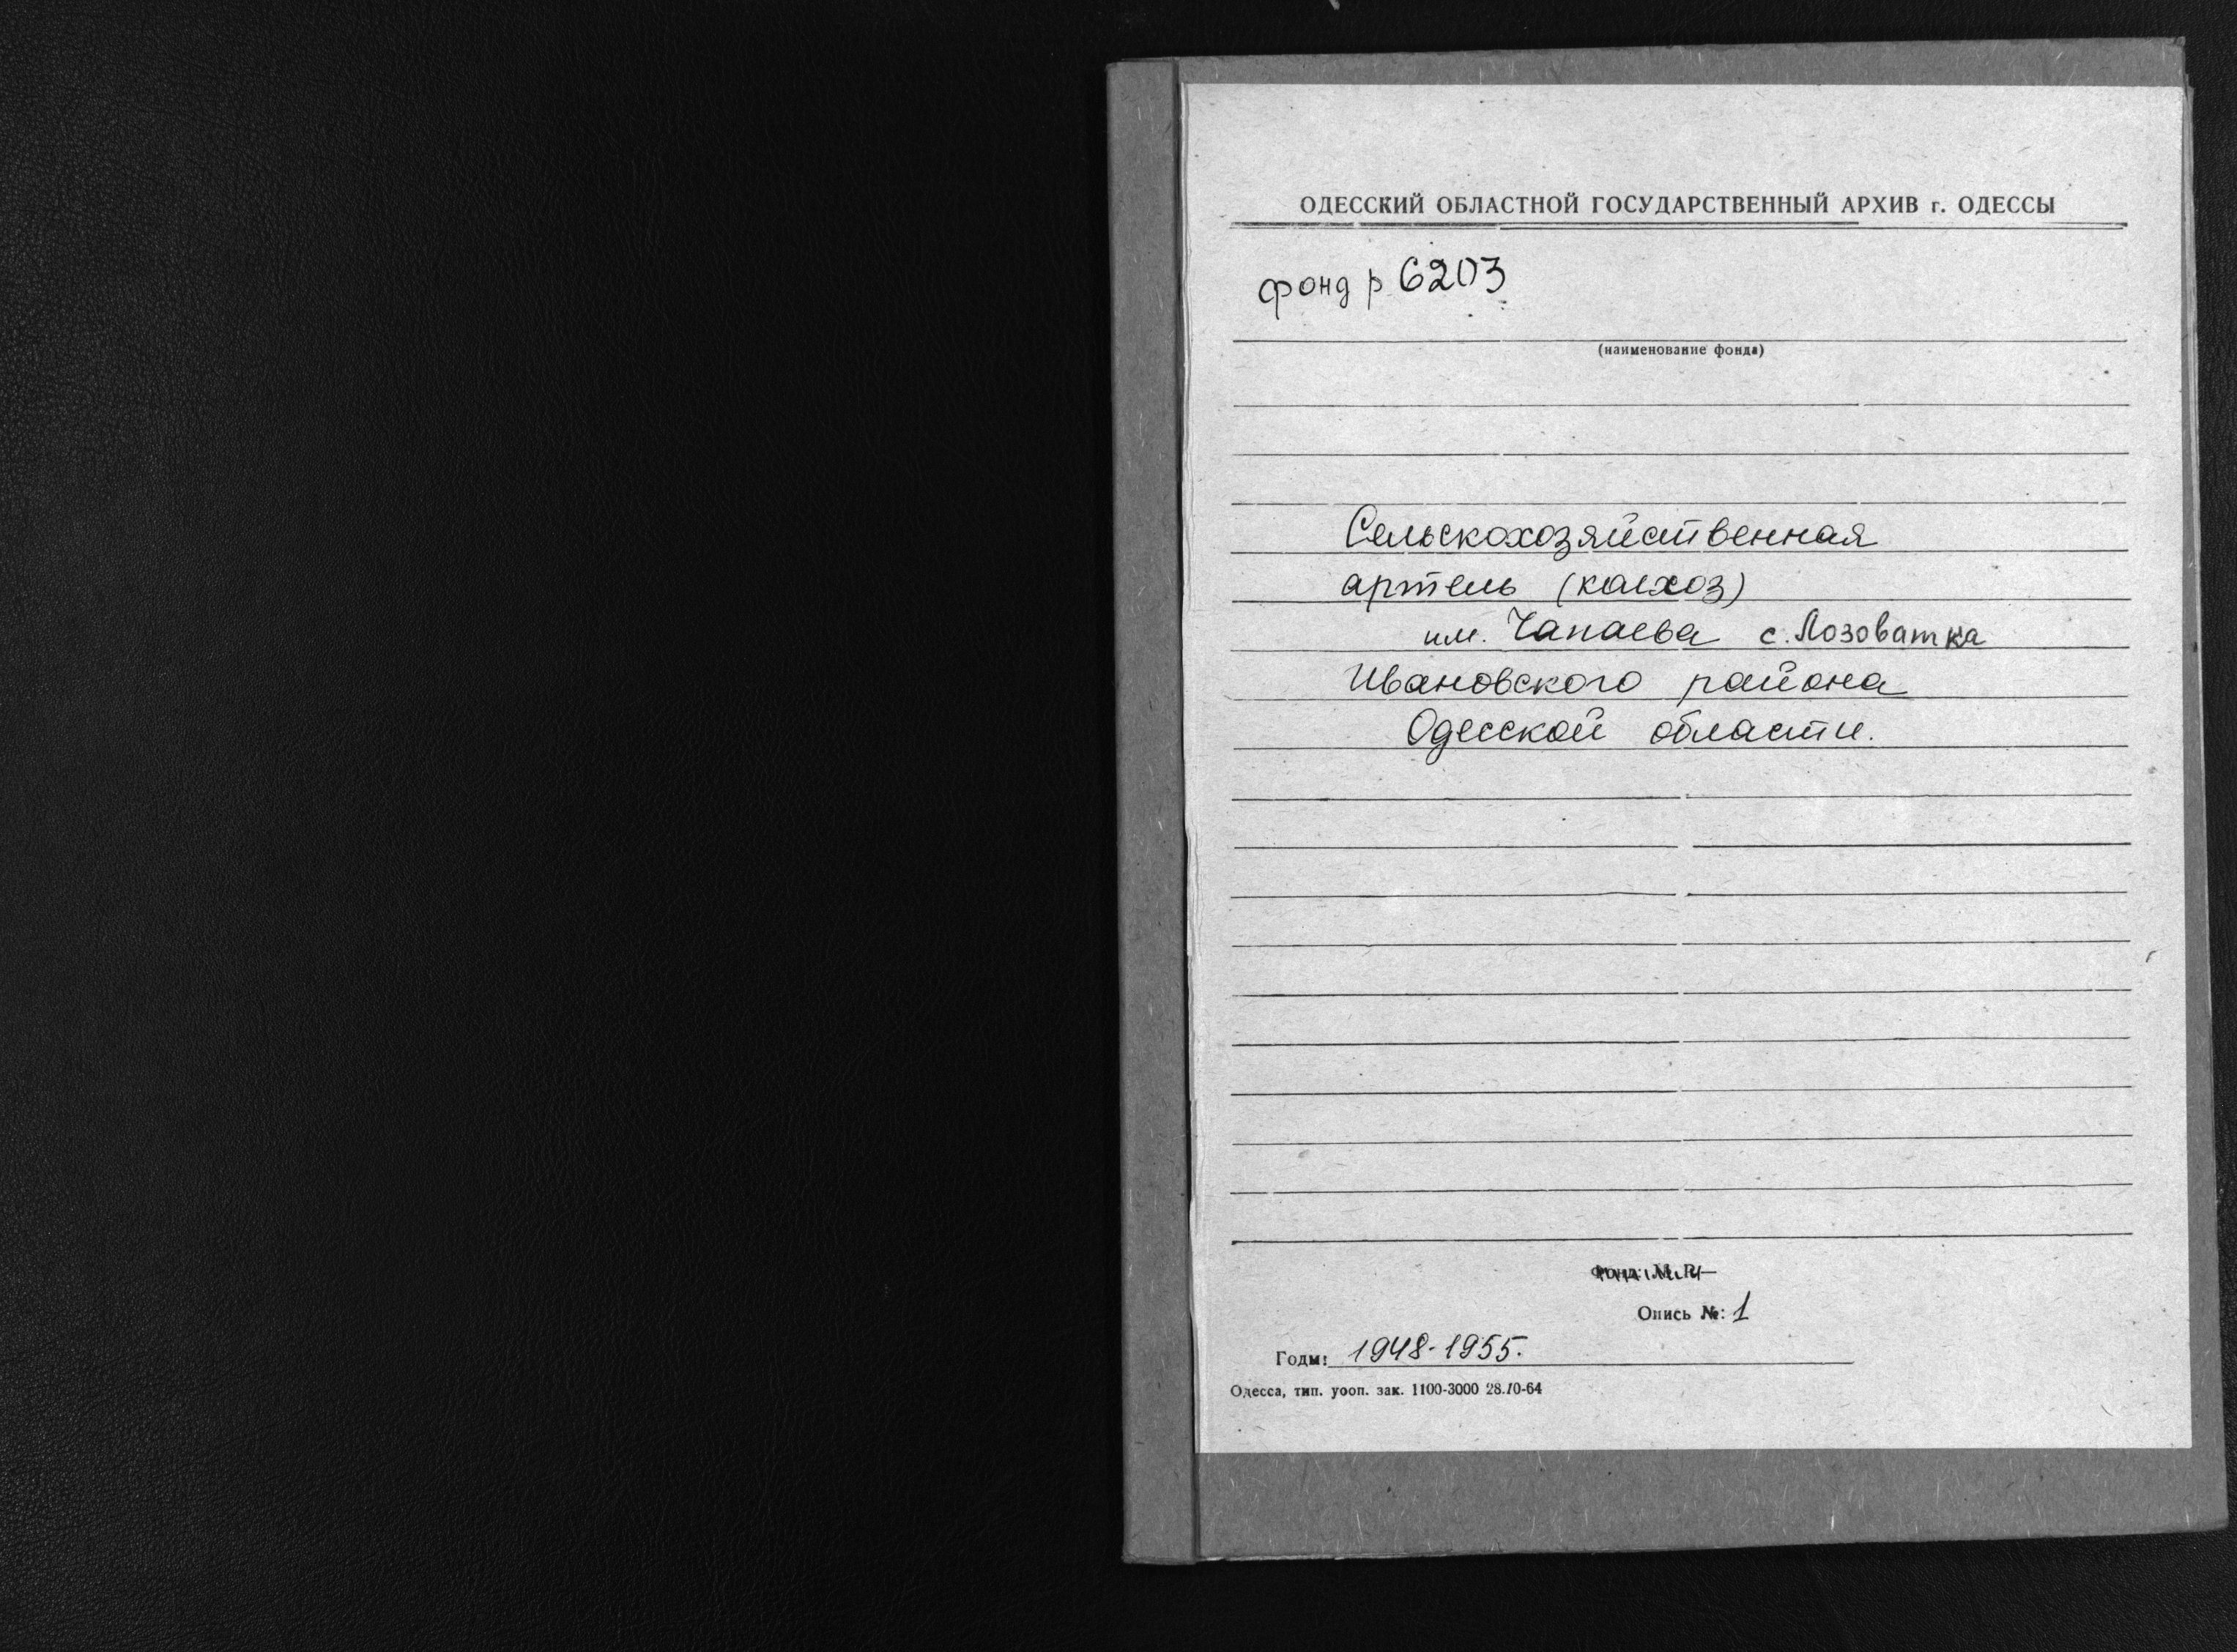 ОДЕССКИЙ ОБЛАСТНОЙ ГОСУДАРСТВЕННЫЙ АРХИВ г. ОДЕССЫ
фонд р 6203
(наименование фонда)
Сельскохозяйственная
артель (колхоз)
им. Чапаева с. Лозоватка
Ивановского района
Одесской области.
Опись №: 1
Годы: 1948-1955.
Одесса, тип. уооп. зак. 1100-3000 28.10-64